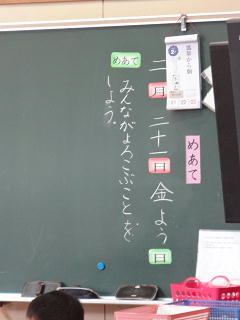 二月二十一日金よう日
めあて
めあて
みんながよろこぶことを
しよう。